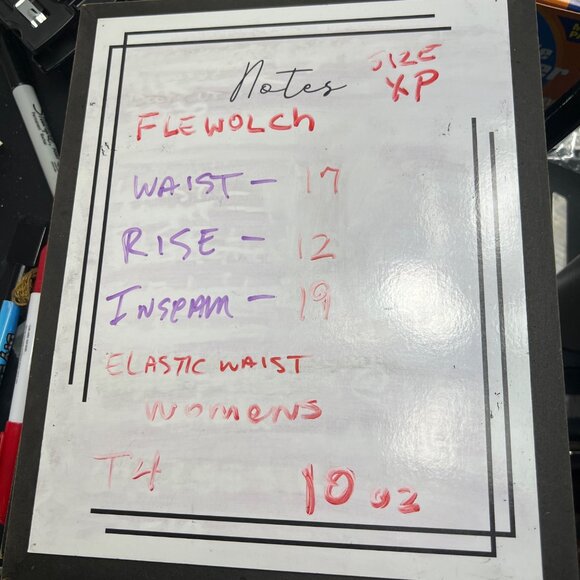 Notes
SIZE
XP
FLEWOLCH
WAIST - 17
RISE - 12
INSEAM - 19
ELASTIC WAIST
WOMENS
T4
10 oz